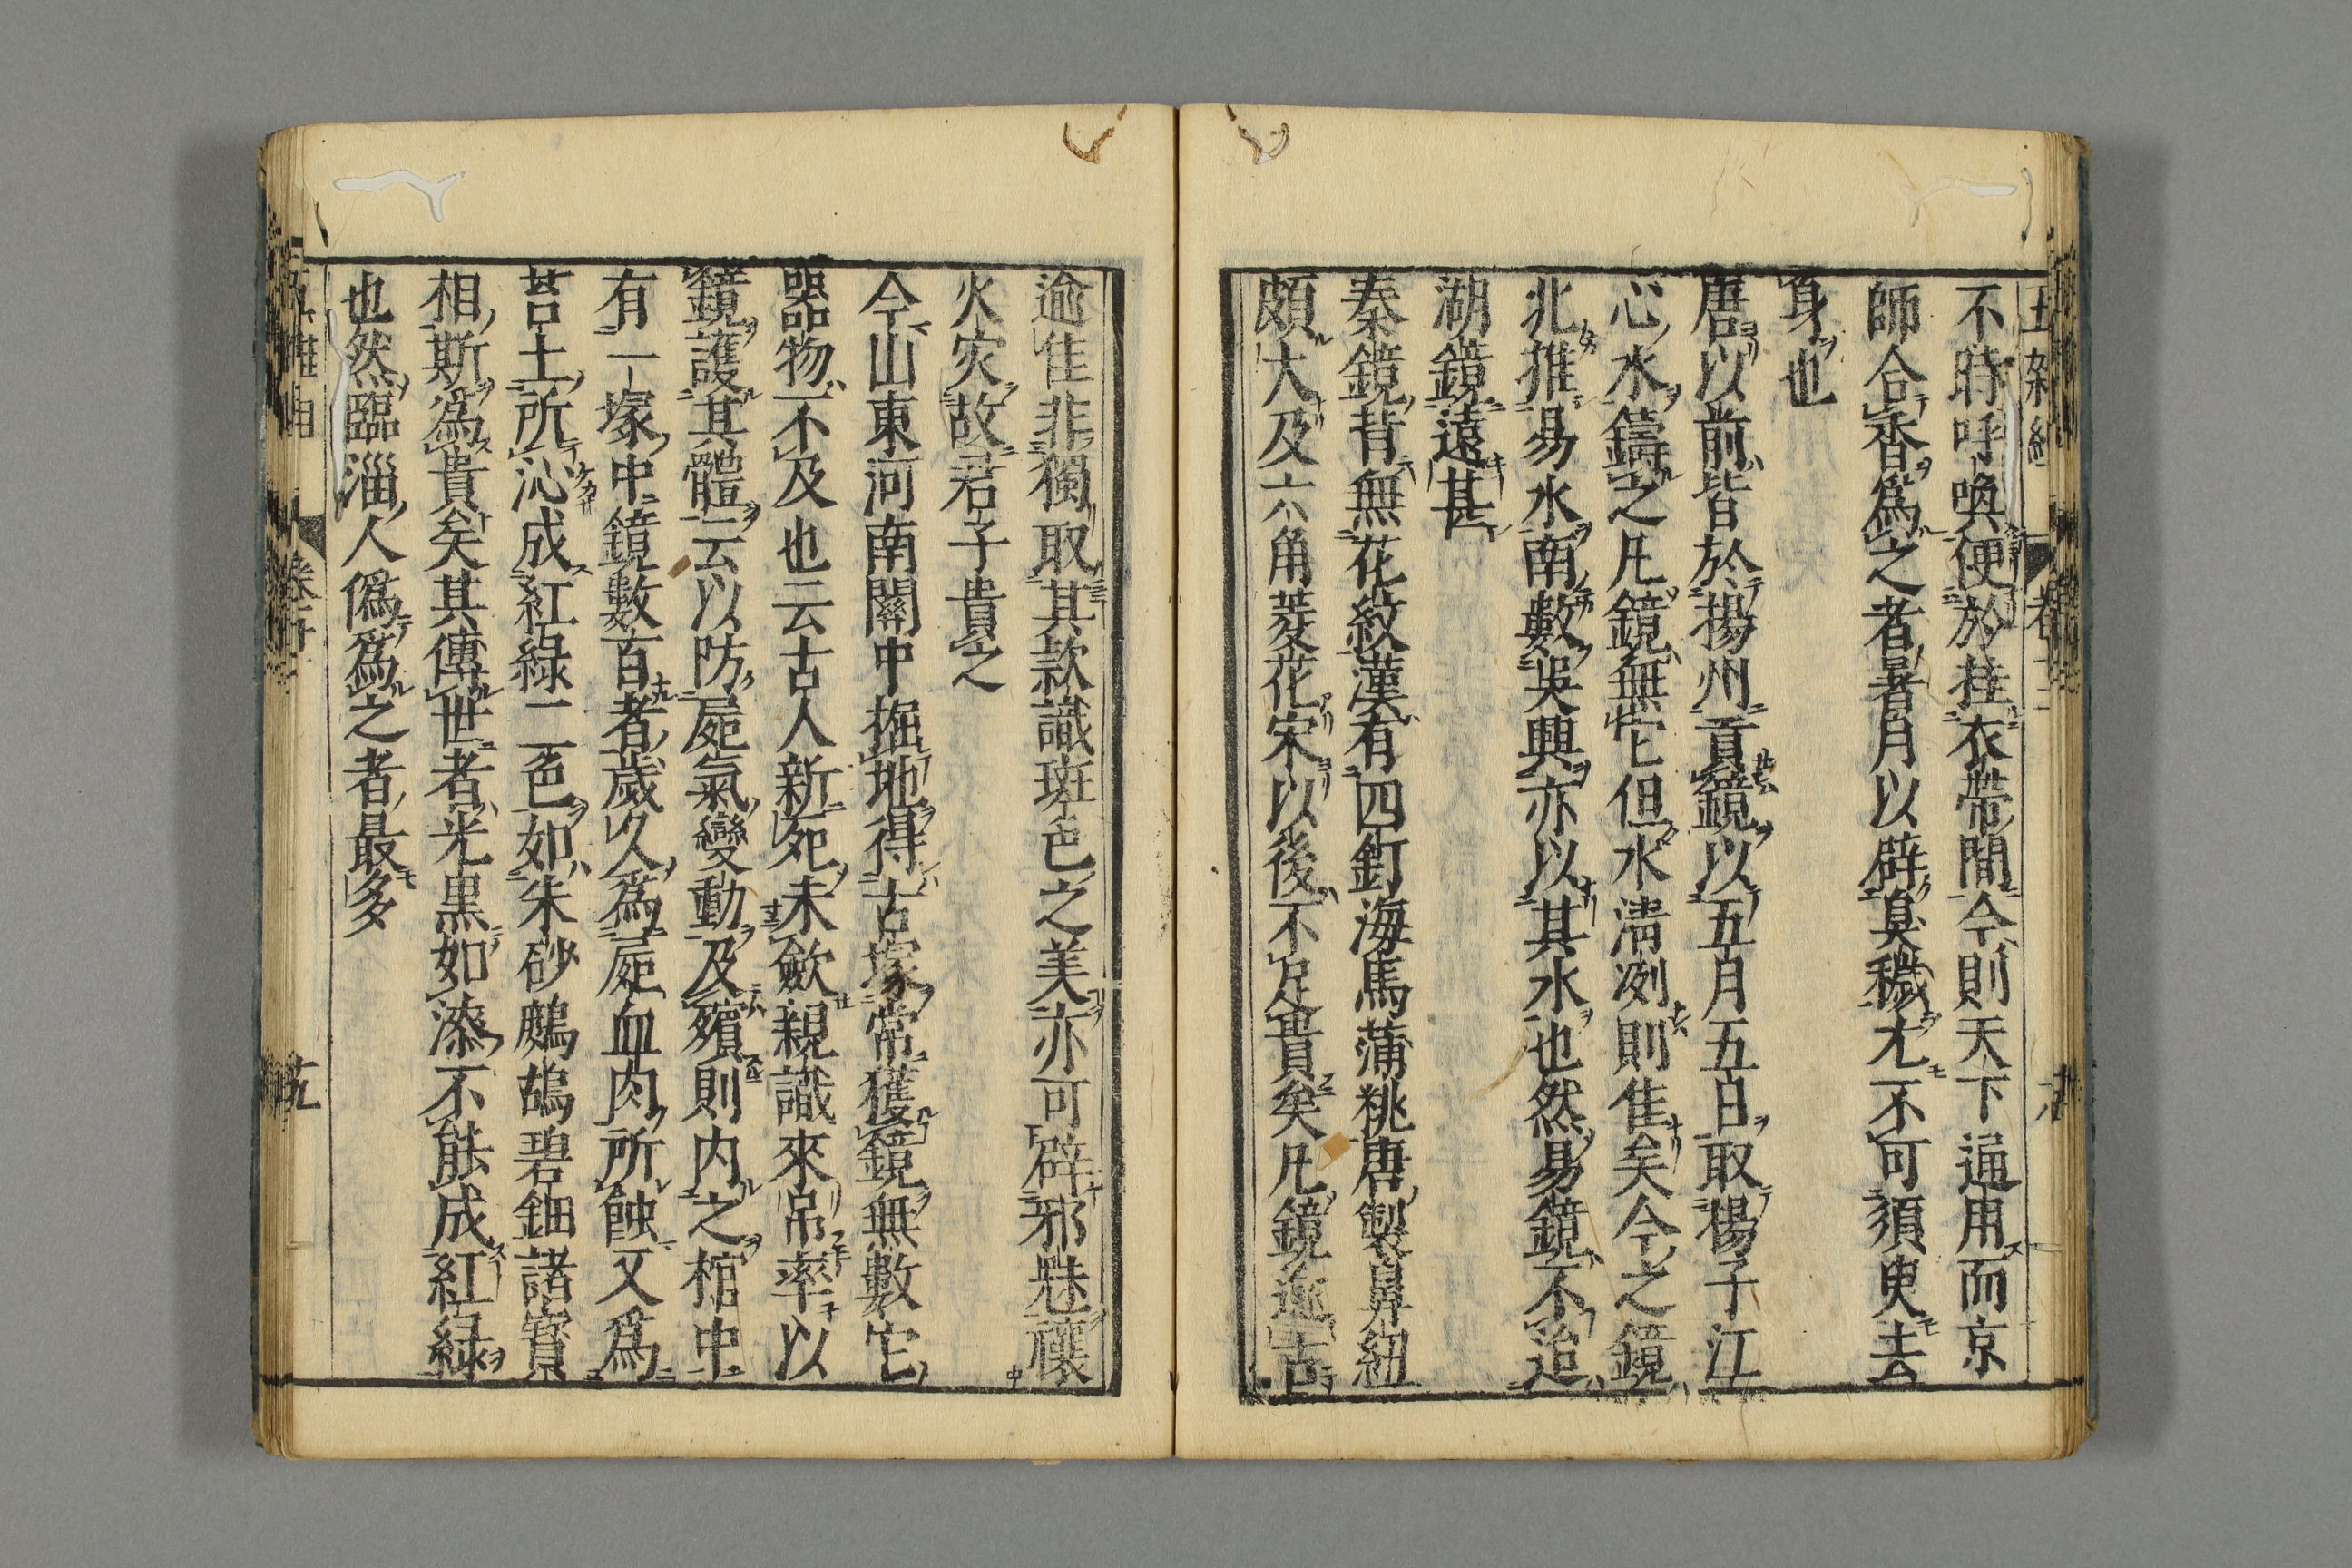 不時呼喚便於挂衣帶間今則天下通用而京
師合香爲之者暑月以辟臭穢尤不可須臾去
身也
唐以前皆於揚州貢鏡以五月五日取楊子江
心水鑄之凡鏡無它但水淸冽則佳矣今之鏡
北推易水南數吳興亦以其水也然易鏡不迨
湖鏡遠甚
秦鏡背無花紋漢有四釘海馬蒲桃唐製鼻紐
頗大及六角菱花宋以後不足貴矣凡鏡逾古
逾佳非獨取其款識斑色之美亦可辟邪魅禳
火灾故君子貴之
今山東河南關中掘地得古塚常獲鏡無數它
器物不及也云古人新死未斂親識來吊率以
鏡護其體云以防屍氣變動及殯則内之棺中
有一塚中鏡數百者歲久爲屍血肉所蝕又爲
苔土所沁成紅綠二色如朱砂鷓鴣碧鈿諸寶
相斯爲貴矣其傳世者光黒如漆不能成紅綠
也然臨淄人僞爲之者最多